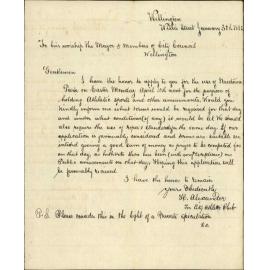 Wellington
Willis Street January 31st 1882
To his worship the Mayor & Members of City Council
Wellington
Gentlemen
I have the honor to apply to you for the use of Newtown
Park on Easter Monday April next for the purpose of
holding Athletic sports and other amusements. Would you
kindly inform me what terms would be required for that day
and under what conditions (if any) it would be let. We should
also require the use of ropes & standards the same day. If our
application is favourably considered and terms are suitable we
intend giving a good sum of money as prizes to be competed for
on that day, as hitherto there has been (with exceptions) no
Public amusements on that day. Hoping this application will
be favourably received
I have the honor to remain
yours Obediently
H. Alexander
for
P.S. Please consider this in the light of a Private speculation